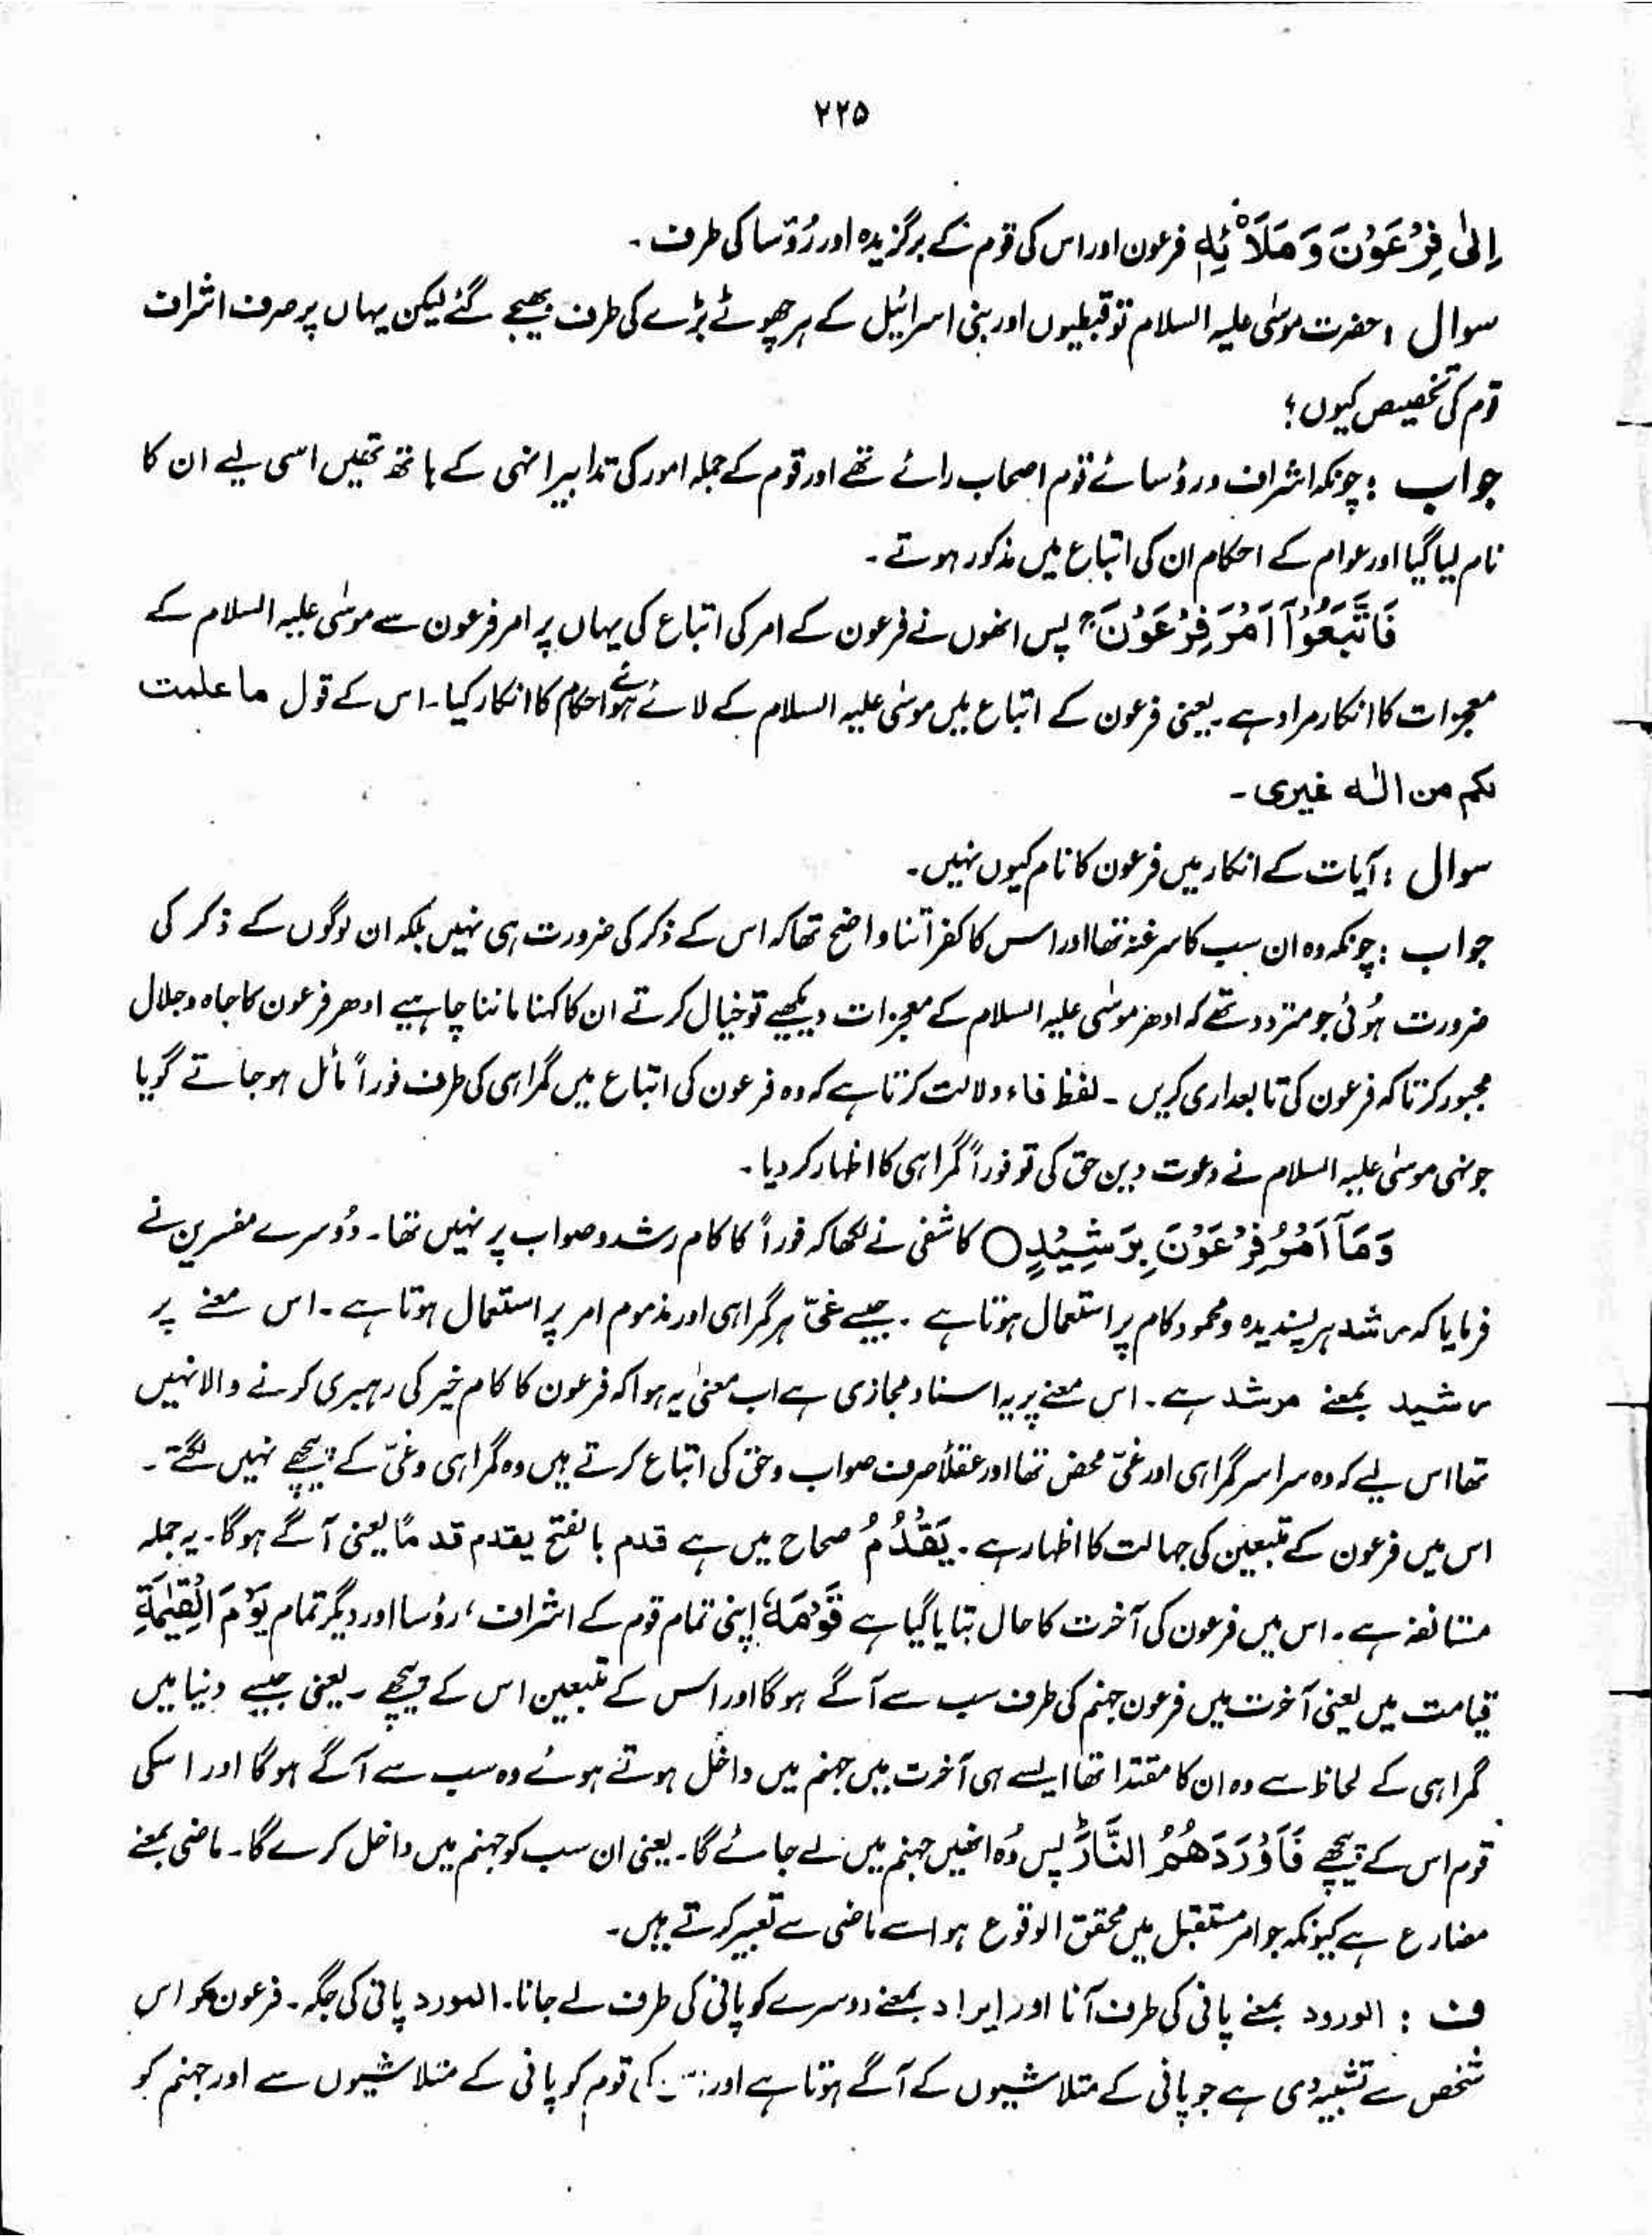 ۲۲۵
اِلٰی فِرْعَوْنَ وَمَلَاْئِهٖ فرعون اور اس کی قوم کے برگزیدہ اور رُوَسا کی طرف۔
سوال : حضرت موسٰی علیہ السلام تو قبطیوں اور بنی اسرائیل کے ہر چھوٹے بڑے کی طرف بھیجے گئے لیکن یہاں پر صرف اشراف
قوم کی تخصیص کیوں ؟
جواب : چونکہ اشراف و رؤسائے قوم اصحاب رائے تھے اور قوم کے جملہ امور کی تدابیر انہی کے ہاتھ تھیں اسی لیے ان کا
نام لیا گیا اور عوام کے احکام ان کی اتباع میں مذکور ہوتے۔
فَاتَّبَعُوْٓا اَمْرَ فِرْعَوْنَ ۚ پس انھوں نے فرعون کے امر کی اتباع کی یہاں پر امر فرعون سے موسٰی علیہ السلام کے
معجزات کا انکار مراد ہے۔ یعنی فرعون کے اتباع میں موسٰی علیہ السلام کے لائے ہوئے احکام کا انکار کیا۔ اس کے قول ما علمت
لکم من الٰه غیری۔
سوال : آیات کے انکار میں فرعون کا نام کیوں نہیں۔
جواب : چونکہ وہ ان سب کا سرغنہ تھا اور اس کا کفر اتنا واضح تھا کہ اس کے ذکر کی ضرورت ہی نہیں بلکہ ان لوگوں کے ذکر کی
ضرورت ہوئی جو متردد تھے کہ ادھر موسٰی علیہ السلام کے معجزات دیکھے تو خیال کرتے ان کا کہنا ماننا چاہیے ادھر فرعون کا جاہ و جلال
مجبور کرتا کہ فرعون کی تابعداری کریں۔ لفظ فاء دلالت کرتا ہے کہ وہ فرعون کی اتباع میں گمراہی کی طرف فوراً مائل ہو جاتے گویا
جونہی موسٰی علیہ السلام نے دعوت دین حق کی تو فوراً گمراہی کا اظہار کر دیا۔
وَمَآ اَمْرُ فِرْعَوْنَ بِرَشِيْدٍ ○ کاشفی نے لکھا کہ فوراً کا کام رشد و صواب پر نہیں تھا۔ دُوسرے مفسرین نے
فرمایا کہ رشد ہر پسندیدہ و محمود کام پر استعمال ہوتا ہے۔ جیسے غیّ ہر گمراہی اور مذموم امر پر استعمال ہوتا ہے۔ اس معنے پر
رشید بمعنے مرشد ہے۔ اس معنے پر یہ اسناد مجازی ہے اب معنیٰ یہ ہوا کہ فرعون کا کام خیر کی رہبری کرنے والا نہیں
تھا اس لیے کہ وہ سراسر گمراہی اور غیّ محض تھا اور عقلاً صرف صواب و حق کی اتباع کرتے ہیں وہ گمراہی و غیّ کے پیچھے نہیں لگتے۔
اس میں فرعون کے متبعین کی جہالت کا اظہار ہے۔ يَقْدُمُ صحاح میں ہے قدم بالفتح یقدم قدماً یعنی آگے ہوگا۔ یہ جملہ
مستانفہ ہے۔ اس میں فرعون کی آخرت کا حال بتایا گیا ہے قَوْمَهٗ اپنی تمام قوم کے اشراف ، رؤسا اور دیگر تمام يَوْمَ الْقِيٰمَةِ
قیامت میں یعنی آخرت میں فرعون جہنم کی طرف سب سے آگے ہوگا اور اس کے متبعین اس کے پیچھے۔ یعنی جیسے دنیا میں
گمراہی کے لحاظ سے وہ ان کا مقتدا تھا ایسے ہی آخرت میں جہنم میں داخل ہوتے ہوئے وہ سب سے آگے ہوگا اور اسکی
قوم اس کے پیچھے فَاَوْرَدَهُمُ النَّارَ ؕ پس وُہ انھیں جہنم میں لے جائے گا۔ یعنی ان سب کو جہنم میں داخل کرے گا۔ ماضی بمعنے
مضارع ہے کیونکہ جو امر مستقبل میں محقق الوقوع ہو اسے ماضی سے تعبیر کرتے ہیں۔
ف : الورود بمعنے پانی کی طرف آنا اور ایراد بمعنے دوسرے کو پانی کی طرف لے جانا۔ المورد پانی کی جگہ۔ فرعون کو اس
شخص سے تشبیہ دی ہے جو پانی کے متلاشیوں کے آگے ہوتا ہے اور کی قوم کو پانی کے متلاشیوں سے اور جہنم کو